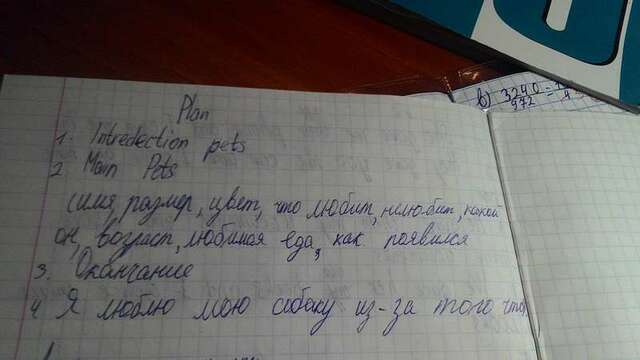 Plan
1. Intredection pets
2 Main Pets
(имя, размер, цвет, что любит, нелюбит, какой
он, возраст, любимая еда, как появился
3. Окончание
4 Я люблю мою собаку из-за того что
в) 3240
972